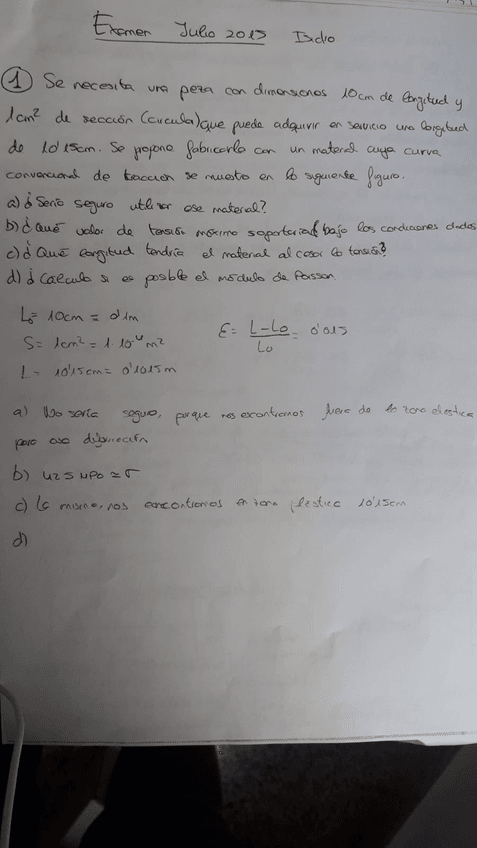 Examen Julio 2015
1 Se necesita una pieza con dimensiones 10cm de longitud y
1cm² de sección (circular) que puede adquirir en servicio una longitud
de 10'15cm. Se propone fabricarlo con un material cuya curva
convencional de tracción se muestra en la siguiente figura.
a) ¿Sería seguro utilizar ese material?
b) ¿Qué valor de tensión máximo soportaría bajo las condiciones dadas
c) ¿Qué longitud tendría el material al cesar la tensión?
d) ¿Calcula si es posible el módulo de Poisson
L₀= 10cm = 0'1m
ε= L-L₀/L₀ = 0'015
S= 1cm² = 1·10⁻⁴ m²
L= 10'15cm= 0'1015m
a) No sería seguro, porque nos encontramos fuera de la zona elastica
para esa deformación
b) 425 MPa = σ
c) La misma, nos encontramos en zona plastica 10'15cm
d)